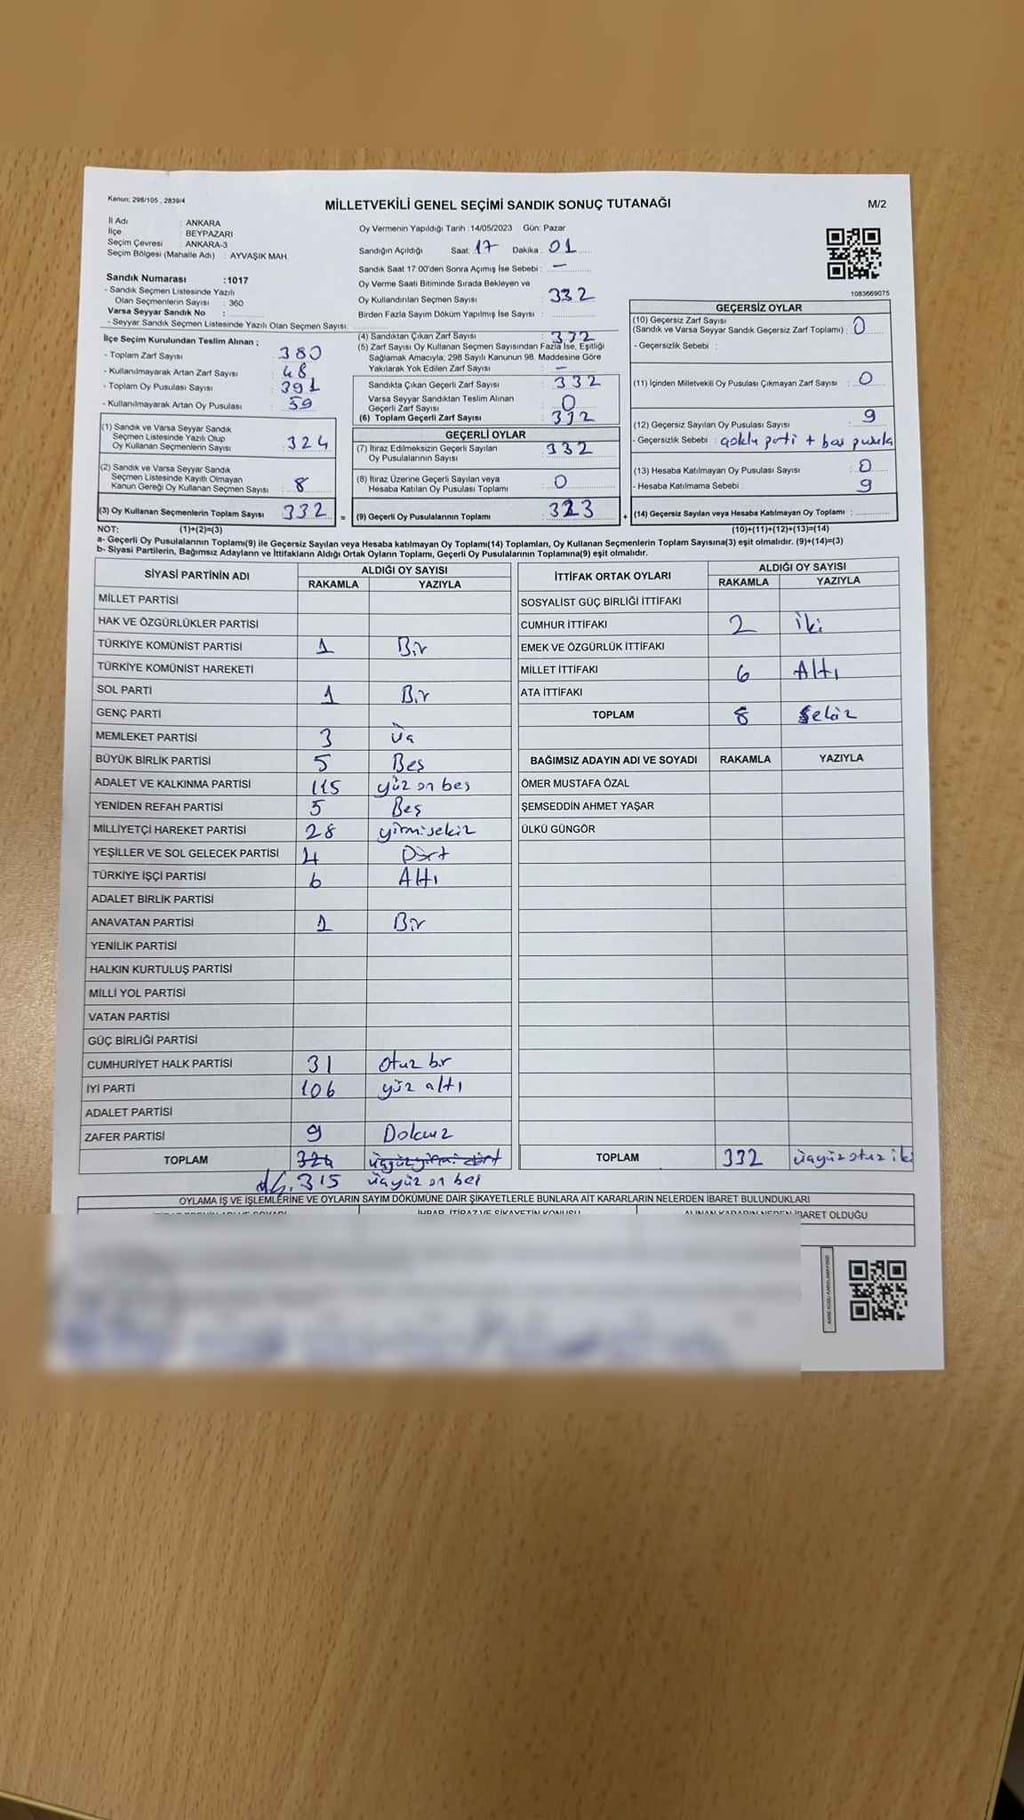 Kanun: 298/105 , 2839/4
MİLLETVEKİLİ GENEL SEÇİMİ SANDIK SONUÇ TUTANAĞI
M/2
İl Adı : ANKARA
İlçe : BEYPAZARI
Seçim Çevresi : ANKARA-3
Seçim Bölgesi (Mahalle Adı) : AYVAŞIK MAH.
Sandık Numarası :1017
- Sandık Seçmen Listesinde Yazılı
Olan Seçmenlerin Sayısı : 360
Varsa Seyyar Sandık No :
- Seyyar Sandık Seçmen Listesinde Yazılı Olan Seçmen Sayısı:
Oy Vermenin Yapıldığı Tarih :14/05/2023 Gün: Pazar
Sandığın Açıldığı Saat: 17 Dakika: 01
Sandık Saat 17:00'den Sonra Açımış İse Sebebi : -
Oy Verme Saati Bitiminde Sırada Bekleyen ve
Oy Kullandırılan Seçmen Sayısı : 332
Birden Fazla Sayım Döküm Yapılmış İse Sayısı :
1083669075
İlçe Seçim Kurulundan Teslim Alınan ;
- Toplam Zarf Sayısı : 380
- Kullanılmayarak Artan Zarf Sayısı : 48
- Toplam Oy Pusulası Sayısı : 391
- Kullanılmayarak Artan Oy Pusulası : 59
(1) Sandık ve Varsa Seyyar Sandık
Seçmen Listesinde Yazılı Olup
Oy Kullanan Seçmenlerin Sayısı : 324
(2) Sandık ve Varsa Seyyar Sandık
Seçmen Listesinde Kayıtlı Olmayan
Kanun Gereği Oy Kullanan Seçmen Sayısı : 8
(3) Oy Kullanan Seçmenlerin Toplam Sayısı : 332 =
(4) Sandıktan Çıkan Zarf Sayısı : 332
(5) Zarf Sayısı Oy Kullanan Seçmen Sayısından Fazla İse, Eşitliği
Sağlamak Amacıyla, 298 Sayılı Kanunun 98. Maddesine Göre
Yakılarak Yok Edilen Zarf Sayısı : -
Sandıkta Çıkan Geçerli Zarf Sayısı : 332
Varsa Seyyar Sandıktan Teslim Alınan
Geçerli Zarf Sayısı : 0
(6) Toplam Geçerli Zarf Sayısı : 332
GEÇERLİ OYLAR
(7) İtiraz Edilmeksizin Geçerli Sayılan
Oy Pusulalarının Sayısı : 332
(8) İtiraz Üzerine Geçerli Sayılan veya
Hesaba Katılan Oy Pusulası Toplamı : 0
(9) Geçerli Oy Pusulalarının Toplamı : 323 +
GEÇERSİZ OYLAR
(10) Geçersiz Zarf Sayısı
(Sandık ve Varsa Seyyar Sandık Geçersiz Zarf Toplamı) : 0
- Geçersizlik Sebebi :
(11) İçinden Milletvekili Oy Pusulası Çıkmayan Zarf Sayısı : 0
(12) Geçersiz Sayılan Oy Pusulası Sayısı : 9
- Geçersizlik Sebebi : çoklu parti + boş pusula
(13) Hesaba Katılmayan Oy Pusulası Sayısı : 0
- Hesaba Katılmama Sebebi : 9
(14) Geçersiz Sayılan veya Hesaba Katılmayan Oy Toplamı :
NOT: (1)+(2)=(3) (10)+(11)+(12)+(13)=(14)
a- Geçerli Oy Pusulalarının Toplamı(9) ile Geçersiz Sayılan veya Hesaba katılmayan Oy Toplamı(14) Toplamları, Oy Kullanan Seçmenlerin Toplam Sayısına(3) eşit olmalıdır. (9)+(14)=(3)
b- Siyasi Partilerin, Bağımsız Adayların ve İttifakların Aldığı Ortak Oyların Toplamı, Geçerli Oy Pusulalarının Toplamına(9) eşit olmalıdır.
SİYASİ PARTİNİN ADI ALDIĞI OY SAYISI
RAKAMLA YAZIYLA
MİLLET PARTİSİ
HAK VE ÖZGÜRLÜKLER PARTİSİ
TÜRKİYE KOMÜNİST PARTİSİ 1 Bir
TÜRKİYE KOMÜNİST HAREKETİ
SOL PARTİ 1 Bir
GENÇ PARTİ
MEMLEKET PARTİSİ 3 Üç
BÜYÜK BİRLİK PARTİSİ 5 Beş
ADALET VE KALKINMA PARTİSİ 115 yüz on beş
YENİDEN REFAH PARTİSİ 5 Beş
MİLLİYETÇİ HAREKET PARTİSİ 28 yirmisekiz
YEŞİLLER VE SOL GELECEK PARTİSİ 4 Dört
TÜRKİYE İŞÇİ PARTİSİ 6 Altı
ADALET BİRLİK PARTİSİ
ANAVATAN PARTİSİ 1 Bir
YENİLİK PARTİSİ
HALKIN KURTULUŞ PARTİSİ
MİLLİ YOL PARTİSİ
VATAN PARTİSİ
GÜÇ BİRLİĞİ PARTİSİ
CUMHURİYET HALK PARTİSİ 31 otuz bir
İYİ PARTİ 106 yüz altı
ADALET PARTİSİ
ZAFER PARTİSİ 9 Dokuz
TOPLAM 324 üçyüzyirmi dört
315 üçyüz on beş
İTTİFAK ORTAK OYLARI ALDIĞI OY SAYISI
RAKAMLA YAZIYLA
SOSYALİST GÜÇ BİRLİĞİ İTTİFAKI
CUMHUR İTTİFAKI 2 iki
EMEK VE ÖZGÜRLÜK İTTİFAKI
MİLLET İTTİFAKI 6 Altı
ATA İTTİFAKI
TOPLAM 8 Sekiz
BAĞIMSIZ ADAYIN ADI VE SOYADI RAKAMLA YAZIYLA
ÖMER MUSTAFA ÖZAL
ŞEMSEDDİN AHMET YAŞAR
ÜLKÜ GÜNGÖR
TOPLAM 332 üçyüz otuz iki
OYLAMA İŞ VE İŞLEMLERİNE VE OYLARIN SAYIM DÖKÜMÜNE DAİR ŞİKAYETLERLE BUNLARA AİT KARARLARIN NELERDEN İBARET BULUNDUKLARI
İHBAR, İTİRAZ VE ŞİKAYETİN KONUSU
ALINAN KARARIN NEDEN İBARET OLDUĞU